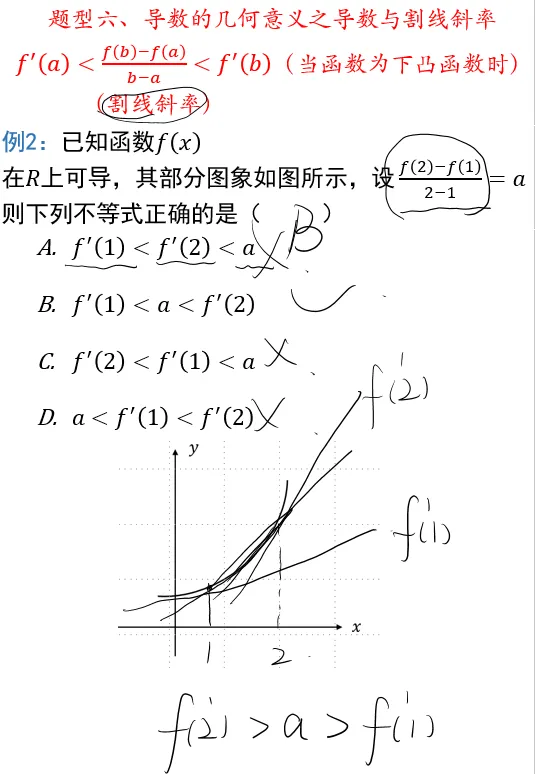 题型六、导数的几何意义之导数与割线斜率
f′(a) < f(b)−f(a)/b−a < f′(b)（当函数为下凸函数时）
（割线斜率）
例2：已知函数f(x)
在R上可导，其部分图象如图所示，设 f(2)−f(1)/2−1 = a
则下列不等式正确的是（ B ）
A. f′(1) < f′(2) < a ×
B. f′(1) < a < f′(2) ✓
C. f′(2) < f′(1) < a ×
D. a < f′(1) < f′(2) ×
f′(2)
y
f′(1)
x
1 2
f′(2) > a > f′(1)